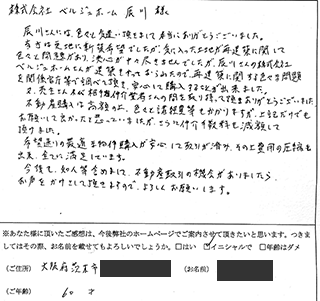 株式会社 ベルジュホーム 辰川 様
辰川さんには、色々と気遣い頂きまして本当にありがとうございました。
今は更地に新築希望でしたが、気に入った土地が再建築に関して
色々と問題があり、決心がつきませんでしたが、辰川さんの株式会社
ベルジュホームさんが建築もやっておられたので、再建築に関する色々な問題
を関係官庁等で調べて頂き、安心して購入することが出来ました。
不動産購入は高額の上、色々と諸経費等もかかりますが、上記だけでも
お願いして良かったと思っていましたが、さらに仲介手数料も減額して
頂きました。
希望通りの最適な物件購入が安心して取引が済み、その上費用の圧縮も
出来、全てに満足しています。
今後も、知人等含めまして、不動産取引の機会がありましたら
お声をかけして頂きますので、よろしくお願いします。
※あなた様に頂いたご感想は、今後弊社のホームページでご案内させて頂きたいと思います。つきま
してはその際、お名前を載せてもよろしいでしょうか？ □はい ☑イニシャルで □年齢はダメ
（ご住所） 大阪府茨木市 （お名前）
（ご年齢） 60 才